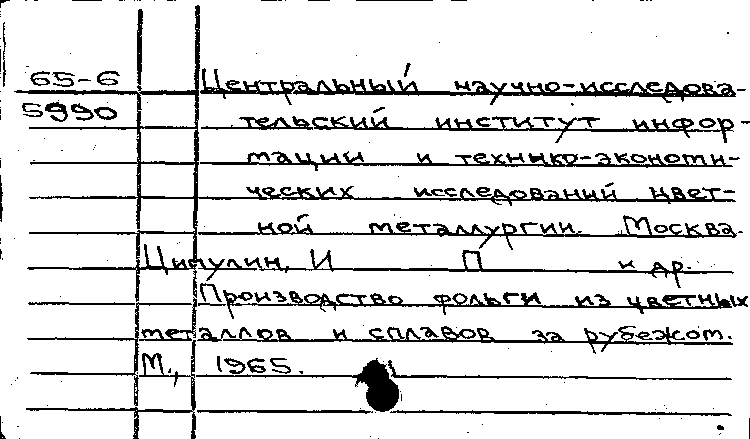 65-6 Центральный научно-исследова-
5990 тельский институт инфор-
мации и технико-экономи-
ческих исследований цвет-
ной металлургии. Москва.
Ципулин, И П и др.
Производство фольги из цветных
металлов и сплавов за рубежом.
М., 1965.